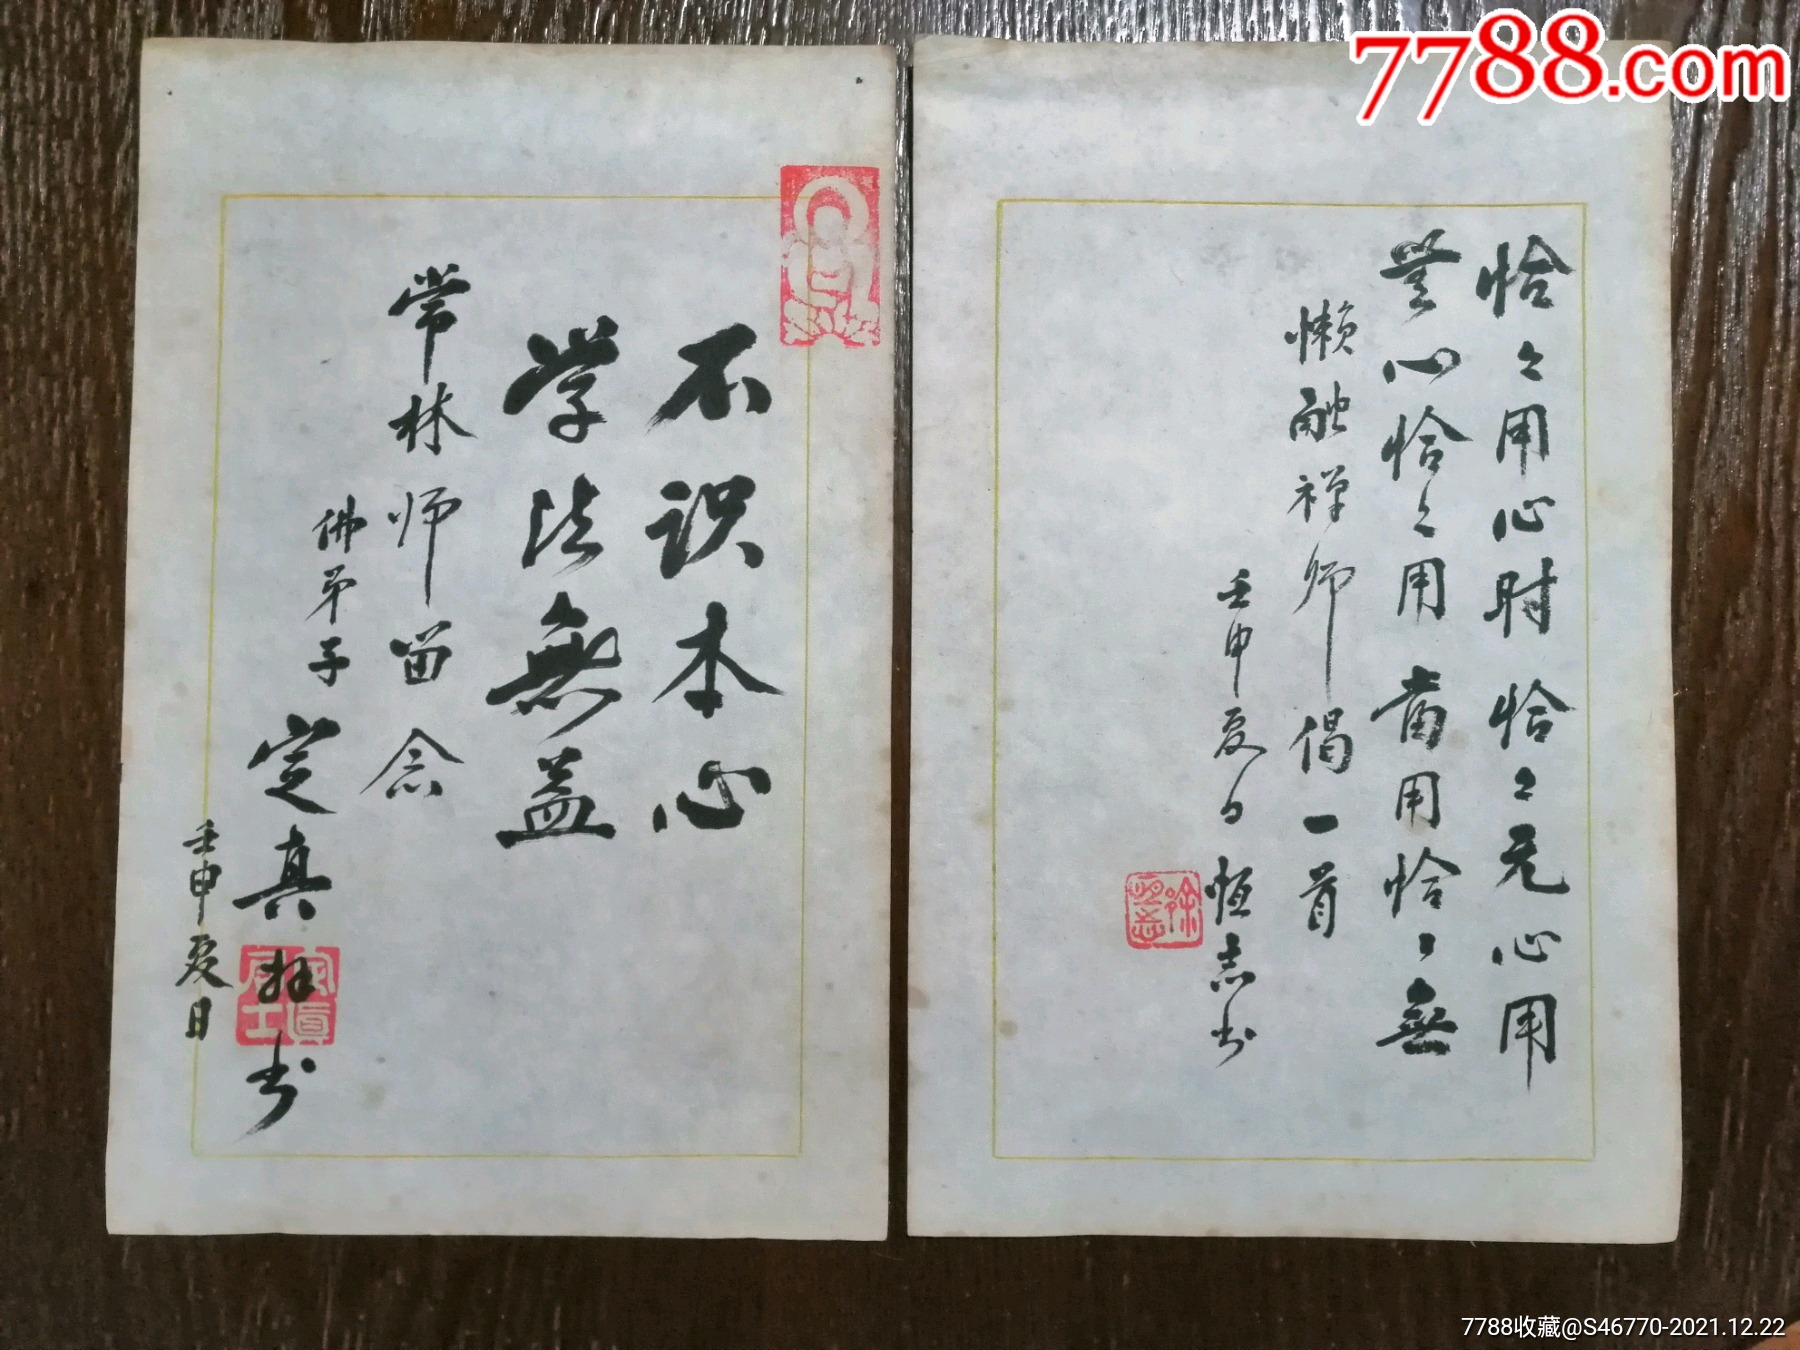 7788.com
恰々用心时恰々无心用
無心恰々用常用恰々無
懒融禅师偈一首
壬申夏日恒志书
徐恒志
不识本心
学法無益
常林师留念
佛弟子定真拜书
定真居士
壬申夏日
7788收藏@S46770-2021.12.22